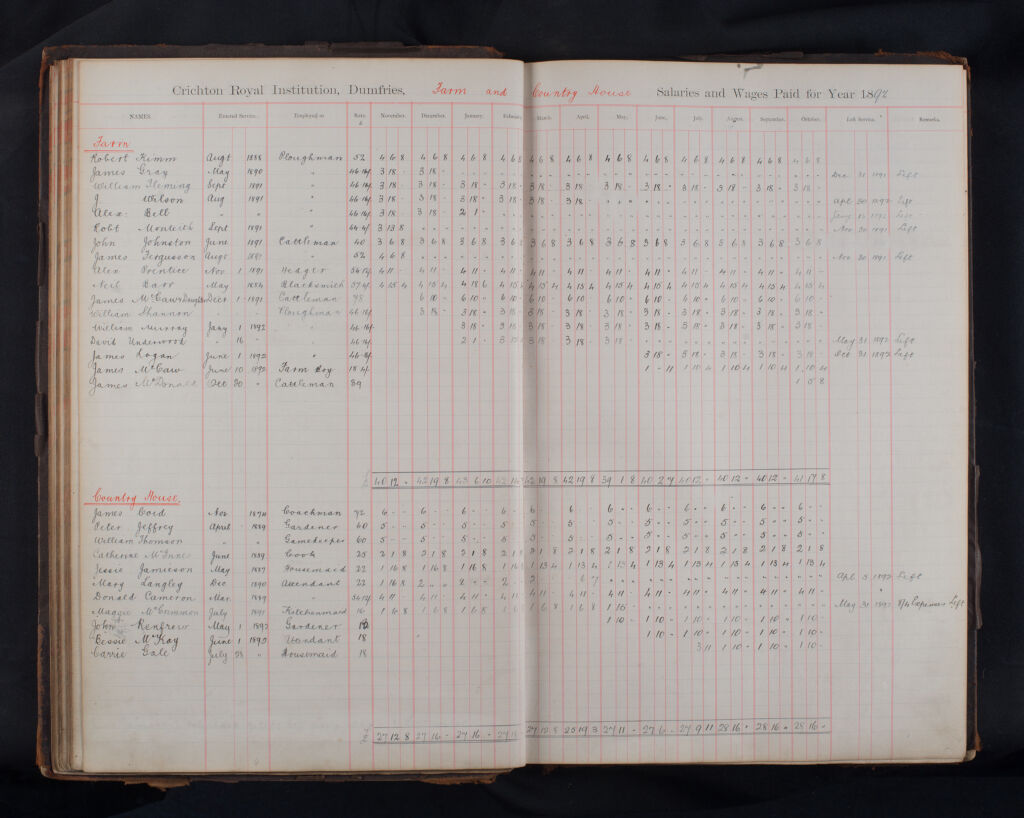 Crichton Royal Institution, Dumfries, Farm and Country House Salaries and Wages Paid for Year 1892
NAMES. Entered Service. Employed as Rate £ November. December. January. February. March. April. May. June. July. August. September. October. Left Service. Remarks.
Farm
Robert Kimm Augt 1888 Ploughman 52 4 6 8 4 6 8 4 6 8 4 6 8 4 6 8 4 6 8 4 6 8 4 6 8 4 6 8 4 6 8 4 6 8 4 6 8
James Gray May 1890 " 46 16/ 3 18 - 3 18 - Dec 31 1891 Left
William Fleming Sept 1891 " 46 16/ 3 18 - 3 18 - 3 18 - 3 18 - 3 18 3 18 3 18 - 3 18 - 3 18 - 3 18 - 3 18 - 3 18 -
J Wilson Aug 1891 " 46 16/ 3 18 - 3 18 - 3 18 - 3 18 - 3 18 3 18 Apl 30 1892 Left
Alex: Bell " " " 46 16/ 3 18 - 3 18 - 2 1 - 1892 Left
Robt Monteith Sept 1891 " 3 13 8 Nov 30 1891 Left
John Johnston June 1891 Cattleman 40 3 6 8 3 6 8 3 6 8 3 6 8 3 6 8 3 6 8 3 6 8 3 6 8 3 6 8 3 6 8 3 6 8 3 6 8
James Fergusson Augt 1887 " 52 4 6 8 Nov 30 1891 Left
Alex Prentice Nov 1 1891 Hedger 54 12/ 4 11 - 4 11 - 4 11 - 4 11 - 4 11 4 11 4 11 - 4 11 - 4 11 - 4 11 - 4 11 - 4 11 -
Neil Barr May 1884 Blacksmith 57 4/ 4 15 4 4 15 4 4 18 6 4 15 4 4 15 4 4 15 4 4 15 4 4 15 4 4 15 4 4 15 4 4 15 4 4 15 4
James McCaw & Daughter Decr 1 1891 Cattleman 78 6 10 - 6 10 - 6 10 - 6 10 6 10 6 10 - 6 10 - 6 10 - 6 10 - 6 10 - 6 10 -
William Shannon " Ploughman 46 16/ 3 18 - 3 18 - 3 18 - 3 18 3 18 3 18 - 3 18 - 3 18 - 3 18 - 3 18 - 3 18 -
William Murray Jany 1 1892 " 46 16/ 3 18 - 3 18 - 3 18 3 18 3 18 - 3 18 - 3 18 - 3 18 - 3 18 - 3 18 -
David Underwood " 16 - " 46 16/ 2 1 - 3 18 3 18 3 18 3 18 - May 31 1892 Left
James Logan June 1 1892 " 46 16/ 3 18 - 3 18 - 3 18 - 3 18 - 3 18 - Oct 31 1892 Left
James McCaw June 10 1892 Farm Boy 18 4/ 1 - 11 1 10 4 1 10 4 1 10 4 1 10 4
James McDonald Oct 20 " Cattleman 39 1 5 8
£ 40 12 - 42 19 8 43 6 10 42 19 8 42 19 8 39 1 8 40 2 7 40 12 - 40 12 - 40 12 - 41 17 8
Country House.
James Coid Nov 1874 Coachman 72 6 - - 6 - - 6 - - 6 - 6 6 6 - - 6 - - 6 - - 6 - - 6 - - 6 - -
Peter Jeffrey April 1889 Gardener 60 5 - - 5 - - 5 - - 5 - 5 5 5 - - 5 - - 5 - - 5 - - 5 - - 5 - -
William Thomson " " Gamekeeper 60 5 - - 5 - - 5 - - 5 - 5 5 5 - - 5 - - 5 - - 5 - - 5 - - 5 - -
Catherine McInnes June 1889 Cook 25 2 1 8 2 1 8 2 1 8 2 1 8 2 1 8 2 1 8 2 1 8 2 1 8 2 1 8 2 1 8 2 1 8 2 1 8
Jessie Jamieson May 1887 Housemaid 22 1 16 8 1 16 8 1 16 8 1 16 8 1 13 4 1 13 4 1 13 4 1 13 4 1 13 4 1 13 4 1 13 4 1 13 4
Mary Langley Dec 1890 Attendant 22 1 16 8 2 - - 2 - - 2 - 2 6 7 Apl 5 1892 Left
Donald Cameron Mar 1889 " 54 12/ 4 11 - 4 11 - 4 11 - 4 11 - 4 11 4 11 4 11 - 4 11 - 4 11 - 4 11 - 4 11 - 4 11 -
Maggie McCummon July 1891 Kitchenmaid 16 1 6 8 1 6 8 1 6 8 1 6 8 1 6 8 1 6 8 1 15 - May 31 1892 8/4 Expenses Left
John Renfrew May 1 1892 Gardener 18 1 10 - 1 10 - 1 10 - 1 10 - 1 10 - 1 10 -
Bessie McKay June 1 1892 Attendant 18 1 10 - 1 10 - 1 10 - 1 10 - 1 10 -
Carrie Gale July 23 " Housemaid 18 3 11 1 10 - 1 10 - 1 10 -
£ 27 12 8 27 16 - 27 16 - 27 12 8 25 19 3 27 11 - 27 6 - 27 9 11 28 16 - 28 16 - 28 16 -